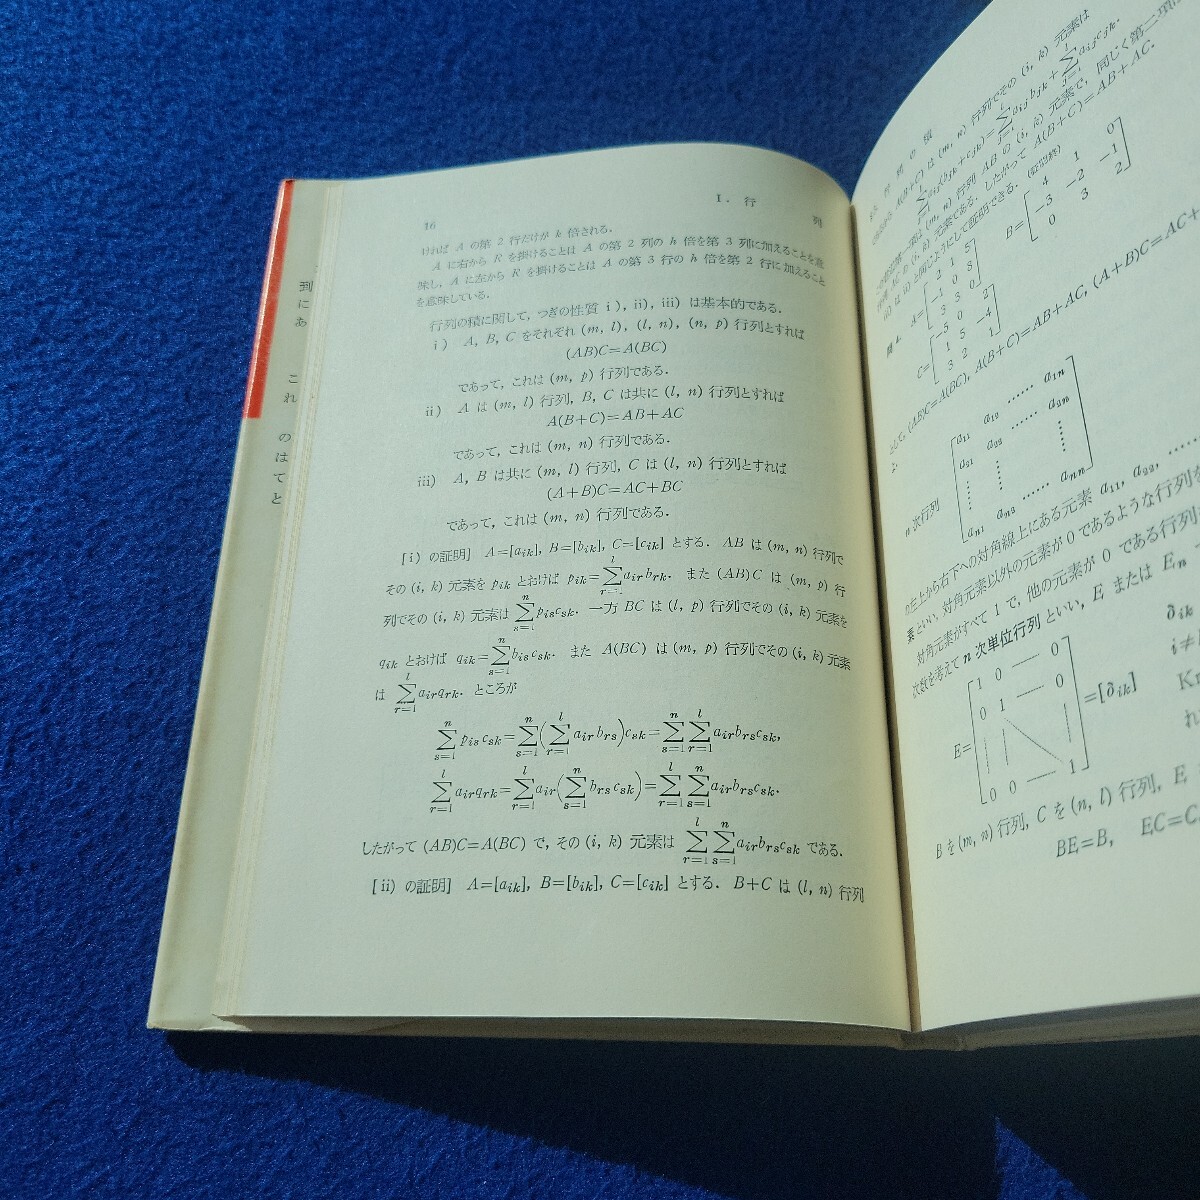 16
I. 行 列
ければ A の第 2 行だけが k 倍される.
A に右から K を掛けることは A の第 2 列の h 倍を第 3 列に加えることを意
味し, A に左から K を掛けることは A の第 3 行の h 倍を第 2 行に加えること
を意味している.
行列の積に関して, つぎの性質 i), ii), iii) は基本的である.
i) A, B, C をそれぞれ (m, l), (l, n), (n, p) 行列とすれば
(AB)C=A(BC)
であって, これは (m, p) 行列である.
ii) A は (m, l) 行列, B, C は共に (l, n) 行列とすれば
A(B+C)=AB+AC
であって, これは (m, n) 行列である.
iii) A, B は共に (m, l) 行列, C は (l, n) 行列とすれば
(A+B)C=AC+BC
であって, これは (m, n) 行列である.
[i) の証明] A=[aik], B=[bik], C=[cik] とする. AB は (m, n) 行列で
その (i, k) 元素を pik とおけば pik=∑_{r=1}^{l} air brk. また (AB)C は (m, p) 行
列でその (i, k) 元素は ∑_{s=1}^{n} pis csk. 一方 BC は (l, p) 行列でその (i, k) 元素を
qik とおけば qik=∑_{s=1}^{n} bis csk. また A(BC) は (m, p) 行列でその (i, k) 元素
は ∑_{r=1}^{l} air qrk. ところが
∑_{s=1}^{n} pis csk=∑_{s=1}^{n}(∑_{r=1}^{l} air brs)csk=∑_{s=1}^{n}∑_{r=1}^{l} air brs csk,
∑_{r=1}^{l} air qrk=∑_{r=1}^{l} air(∑_{s=1}^{n} brs csk)=∑_{r=1}^{l}∑_{s=1}^{n} air brs csk.
したがって (AB)C=A(BC) で, その (i, k) 元素は ∑_{r=1}^{l}∑_{s=1}^{n} air brs csk である.
[ii) の証明] A=[aik], B=[bik], C=[cik] とする. B+C は (l, n) 行列
行列でその (i, k) 元素は
∑_{j=1}^{l} aij(bjk+cjk)=∑_{j=1}^{l} aij bjk+∑_{j=1}^{l} aij cjk.
行列 AB の (i, k) 元素で, 同じく第二項は
元素である. したがって A(B+C)=AB+AC.
ii) と同じようにして証明できる. (証明終)
問 4.
A=
B=[4 1 0
-3 -2 -1
0 3 2]
C=[1 5 -4
3 2 1]
(AB)C=A(BC), A(B+C)=AB+AC, (A+B)C=AC+
n 次行列
[a11 a12 …… a1n
a21 a22 …… a2n
an1 an2 …… ann]
の左上から右下への対角線上にある元素 a11, a22, ……
素といい, 対角元素以外の元素が 0 であるような行列を
対角元素がすべて 1 で, 他の元素が 0 である行列
次数を考えて n 次単位行列 といい, E または En
E=[1 0 — 0
0 1 — 0
0 0 — 1]=[δik]
δik
i≠
Kr
れ
B を (m, n) 行列, C を (n, l) 行列, E
BE=B, EC=C
到にあ
これ
のはてと